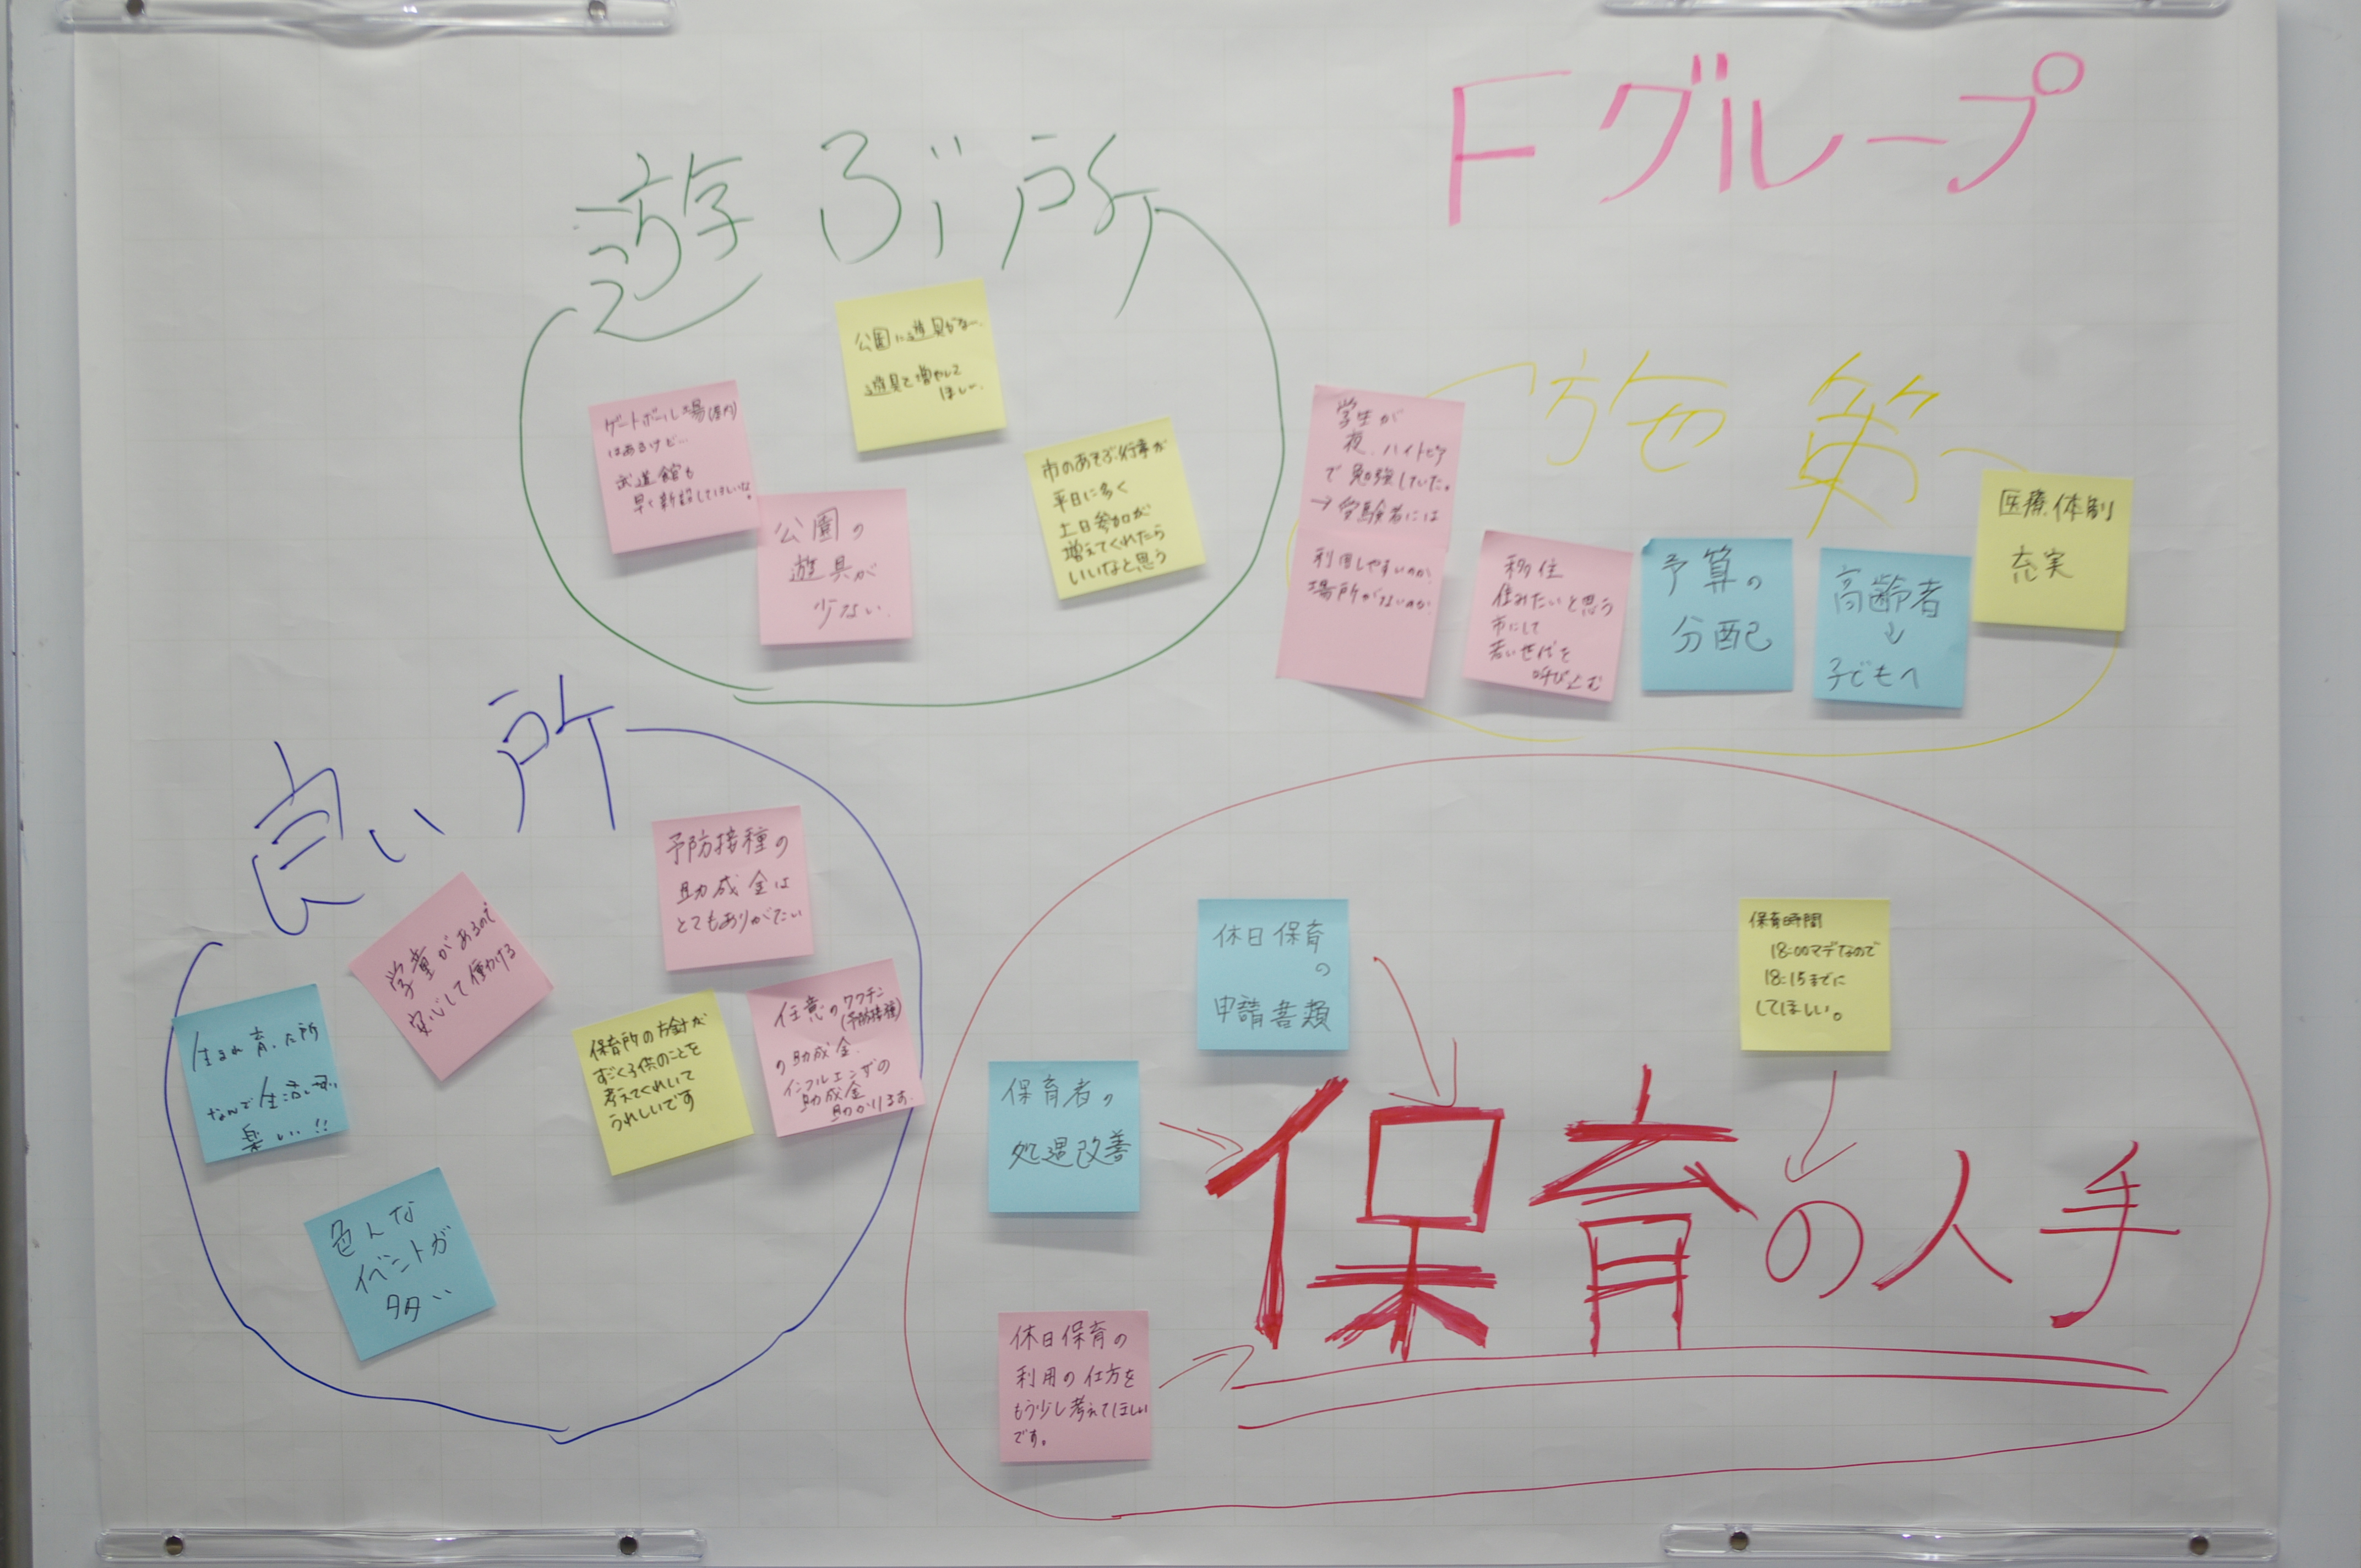 Fグループ
遊ぶ所
公園に遊具がない。
遊具を増やして
ほしい。
ゲートボール場(屋内)
はあるけど…
武道館も
早く新設してほしいな。
公園の
遊具が
少ない。
市のあそぶ行事が
平日に多く
土日参加が
増えてくれたら
いいなと思う
施策
学生が
夜、ハイトピア
で勉強していた。
→受験者には
利用しやすいのか
場所がないのか
移住
住みたいと思う
市にして
若い世代を
呼び込む
予算の
分配
高齢者
↓
子どもへ
医療体制
充実
良い所
予防接種の
助成金は
とてもありがたい
学童があるので
安心して働ける
生まれ育った所
なんで生活し易い
楽しい!!
保育所の方針が
すごく子供のことを
考えてくれいて
うれしいです
任意のワクチン
(予防接種)
の助成金。
インフルエンザの
助成金
助かります。
色んな
イベントが
多い
保育の人手
休日保育
の
申請書類
保育時間
18:00マデなので
18:15までに
してほしい。
保育者の
処遇改善
休日保育の
利用の仕方を
もう少し考えてほしい
です。